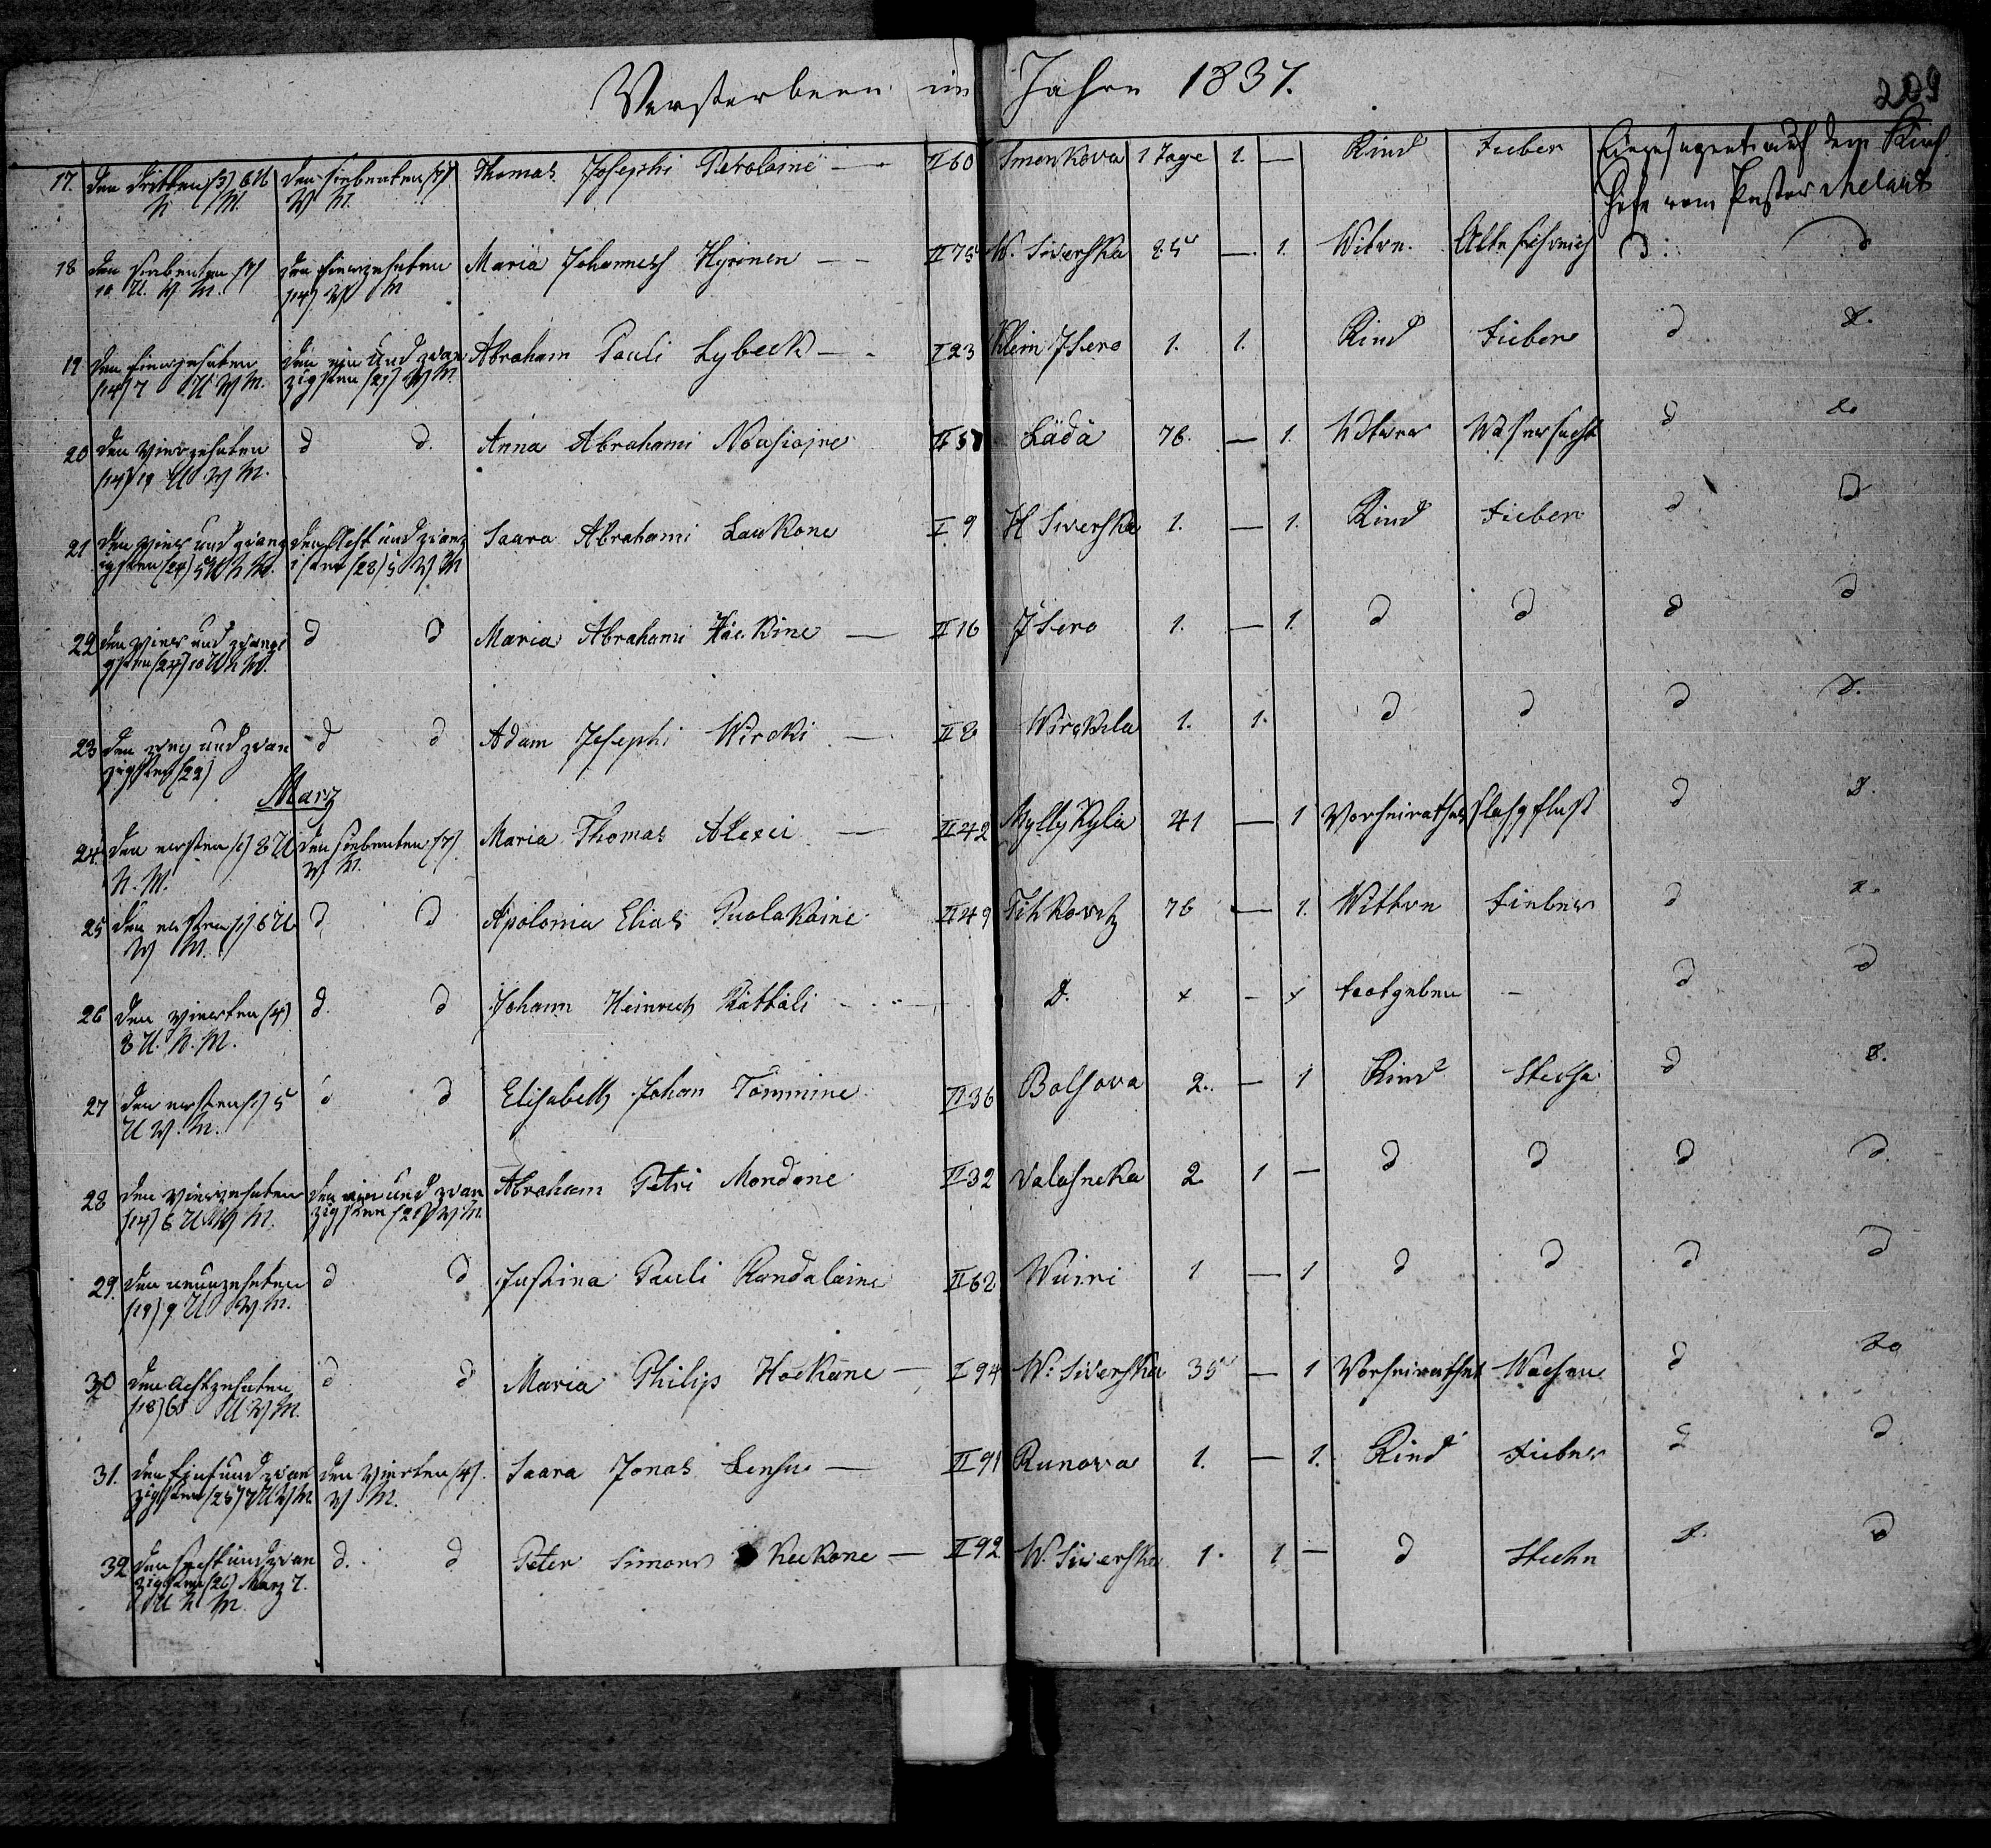 Verstorbene im Jahre 1837.
209
17. den dritten (3) 6 U den siebenten (7) Thomas Josephi Petrolaine — II 60 Smenkova 1 Tage 1. — Kind Fieber Eingesegnet auf dem Kirch
N M. V M. hofe vom Pastor Melart
18 den siebenten (7) den vierzehnten Maria Johannes Hyvönen — II 75 W. Siverska 25 — 1. Witwe. d: d
10 U. V M. (14) V M
19 den vierzehnten den ein und zwan Abraham Pauli Lybeck — I 23 Klein Jsero 1. 1. Kind Fieber d d.
(14) 7 U V M. zigsten (21) V M.
20 den vierzehnten d d. Anna Abrahami Nousiajne II 57 Lädä 76. — 1. Witwe Wassersucht d d.
(14) U V M.
21 den vier und zwanz den Acht und zwanz Saara Abrahami Laukone I 9 H Siverska 1. — 1. Kind Fieber d d
igsten (24) 5 U N M. (28) V M
22 den vier und zwanzi d d Maria Abrahami — II 16 Jsero 1. — 1. d d d d
gsten (24) 10 U N M.
23 den zwey und zwan d d Adam Josephi Wiroki — II 8 Wirokila 1. 1. d d d d.
zigsten (22)
Marz
24. den ersten (1) 8 U den siebenten (7) Maria Thomas Alexei — II 42 Myllykylia 41 — 1 Verheirathet d d.
N. M. V M.
25 den ersten (1) 6 U d d Apolonia Elias Puolakaine II 49 Pihkovitz 76 — 1. Wittwe Fieber d d.
V M.
26 den vierten (4) d. d Johann Heinrich Rättäli — d. + — + todtgeboren — d d
8 U. N. M.
27 den ersten (1) 5 d d Elisabeth Johan Tömmine II 36 Bolsova 2. — 1 Kind d d.
U V. M.
28 den vierzehnten den ein und zwan Abraham Petri Mondone II 32 Valasneka 2 1 — d d d d.
(14) 6 U V M. zigsten (21) V M.
29. den neunzehnten d d Justina Pauli Randalaine II 62 Wuiri 1 — 1 d d d d
(19) 9 U V M.
30 den Achtzehnten d d Maria Philip — I 94 W: Siverska 35 — 1 Verheirathet d do
(18) 6 U V M.
31. den fünf und zwan den Vierten (4). Saara Jonas Lensu — II 91 Runova 1. — 1. Kind Fieber d d
zigsten (25) 7 U V M. V M.
32 den sechs und zwan d. d Peter Simons Keckone — II 92 W. Siverska 1. 1 — d d. d
zigsten (26) Marz 7.
U N M.